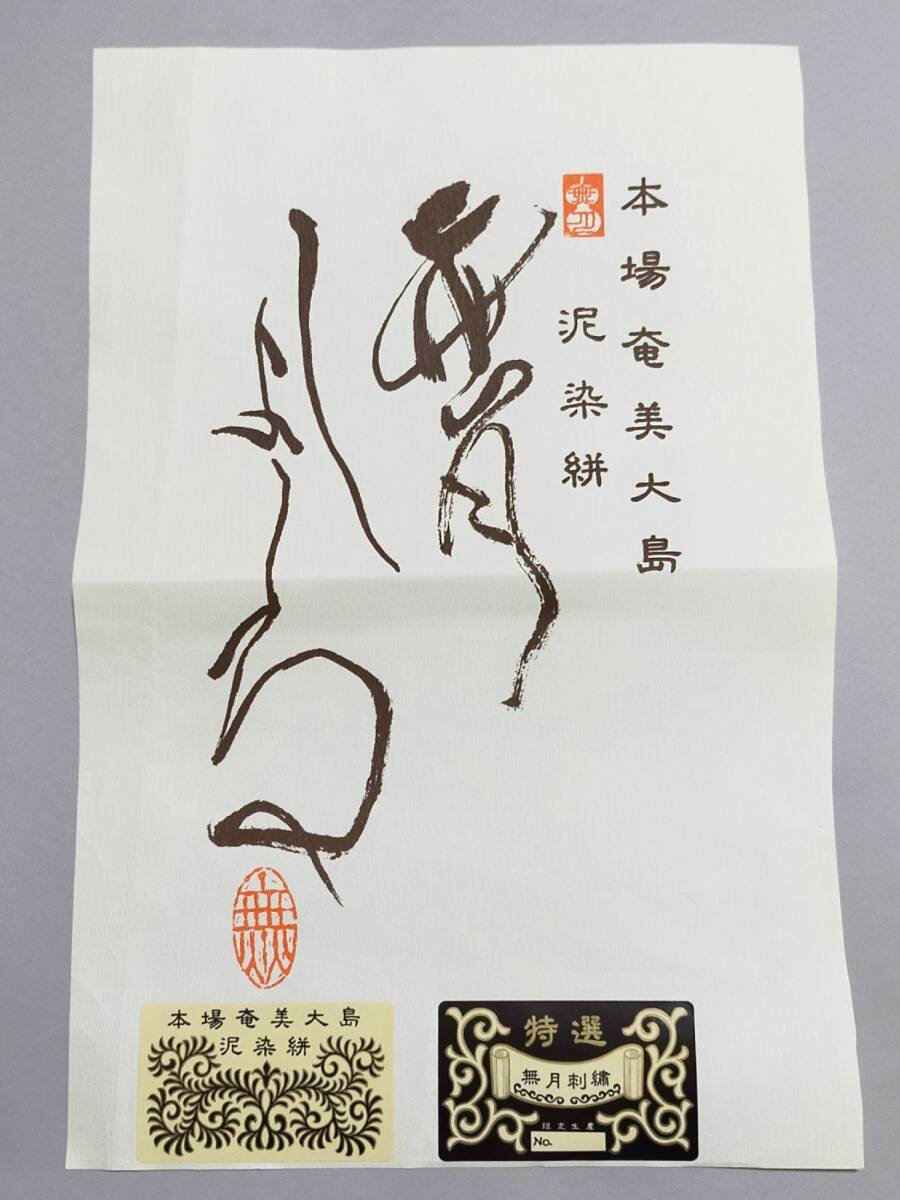 本場奄美大島
泥染絣
無月
無
本場奄美大島
泥染絣
特選
無月刺繍
限定生産
No.